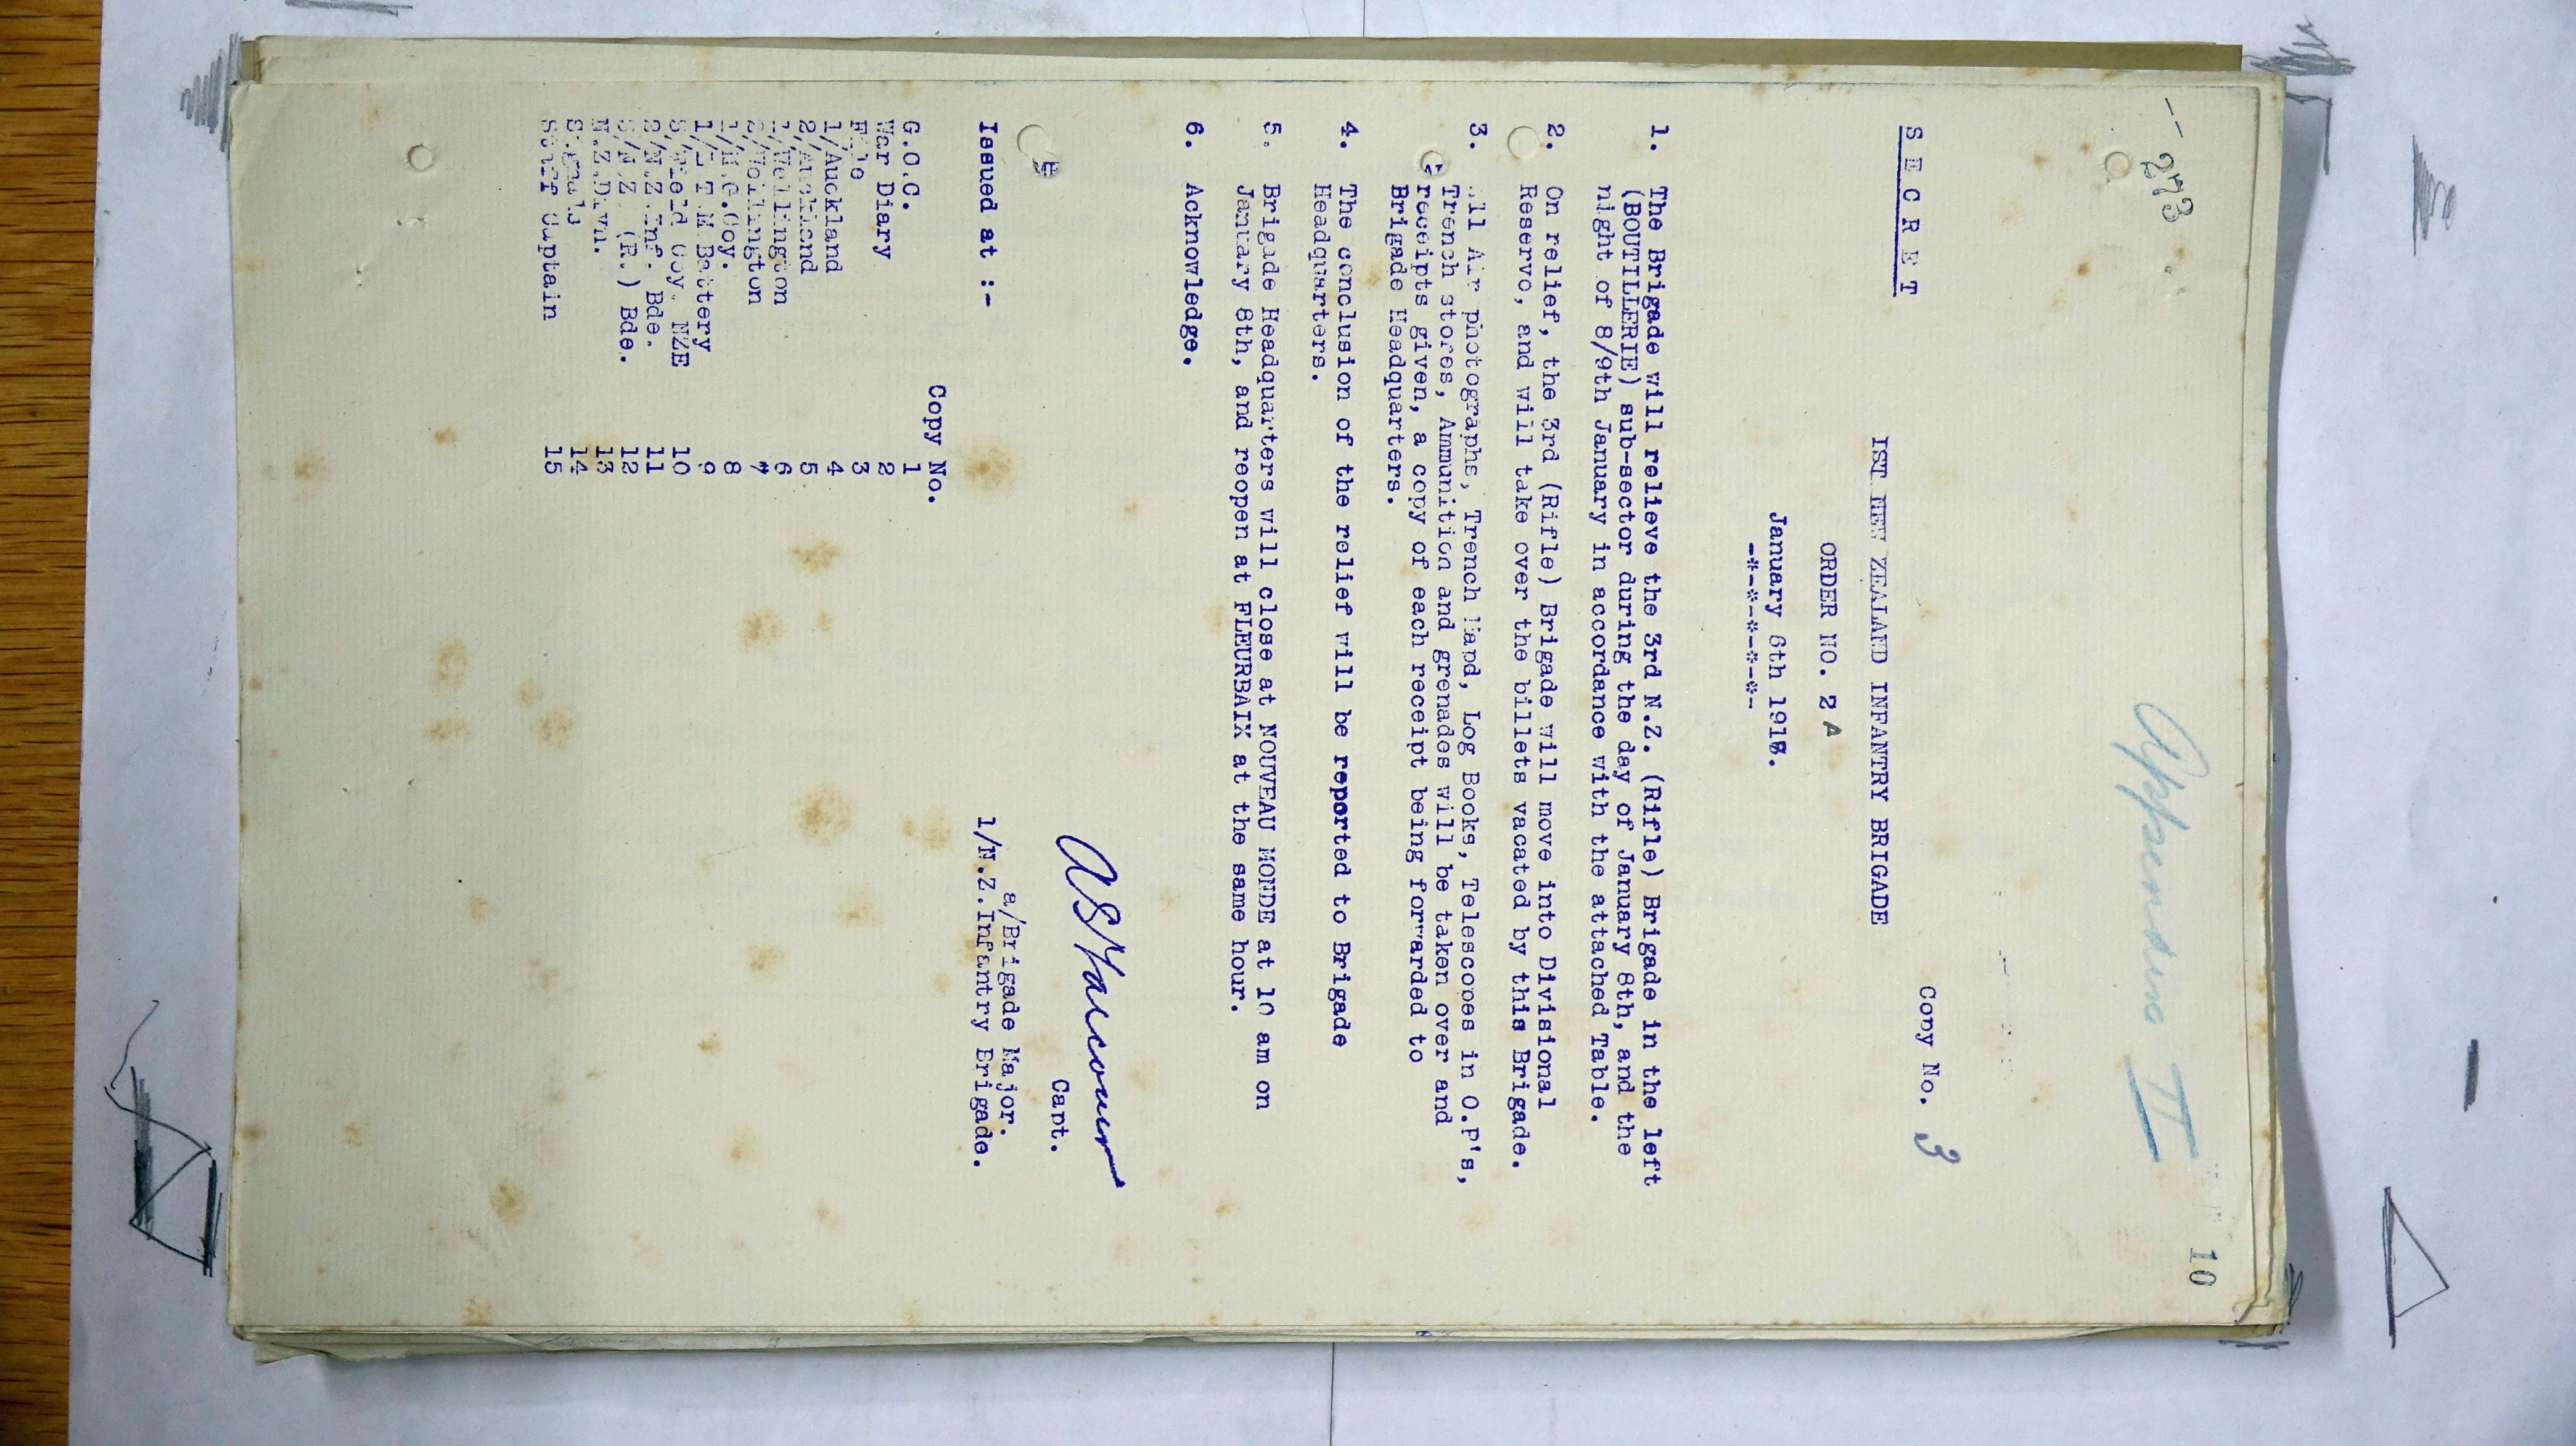 273
Appendix II
10
SECRET
Copy No. 3
IST NEW ZEALAND INFANTRY BRIGADE
ORDER NO. 2 A
January 6th 1917.
-*-*-*-*-*-*--
1. The Brigade will relieve the 3rd N.Z. (Rifle) Brigade in the left
(BOUTILLERIE) sub-sector during the day of January 8th, and the
night of 8/9th January in accordance with the attached Table.
2. On relief, the 3rd (Rifle) Brigade will move into Divisional
Reserve, and will take over the billets vacated by this Brigade.
3. All Air photographs, Trench Hand, Log Books, Telescopes in O.P's,
Trench stores, Ammunition and grenades will be taken over and
receipts given, a copy of each receipt being forwarded to
Brigade Headquarters.
4. The conclusion of the relief will be reported to Brigade
Headquarters.
5. Brigade Headquarters will close at NOUVEAU MONDE at 10 am on
January 8th, and reopen at FLEURBAIX at the same hour.
6. Acknowledge.
Capt.
a/Brigade Major.
Issued at :-
1/N.Z.Infantry Brigade.
Copy No.
G.O.C. 1
War Diary 2
File 3
1/Auckland 4
2/Auckland 5
1/Wellington 6
2/Wellington 7
1/M.G.Coy. 8
1/L T M Battery 9
3/Field Coy. NZE 10
2/N.Z.Inf. Bde. 11
3/N.Z. (R.) Bde. 12
N.Z.Divn. 13
Signals 14
Staff Captain 15